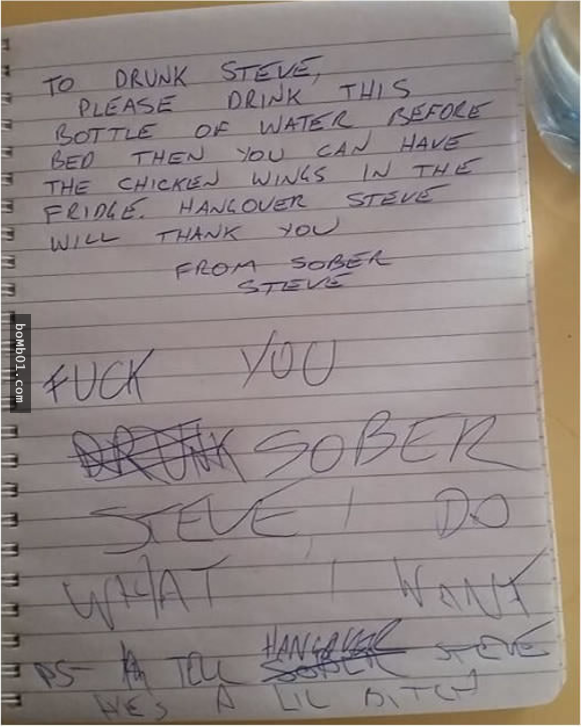 TO DRUNK STEVE,
PLEASE DRINK THIS
BOTTLE OF WATER BEFORE
BED THEN YOU CAN HAVE
THE CHICKEN WINGS IN THE
FRIDGE. HANGOVER STEVE
WILL THANK YOU
FROM SOBER
STEVE
FUCK YOU
DRUNK SOBER
STEVE, I DO
WHAT I WANT
HANGOVER
PS- TELL SOBER STEVE
HES A LIL BITCH
boMb01.com